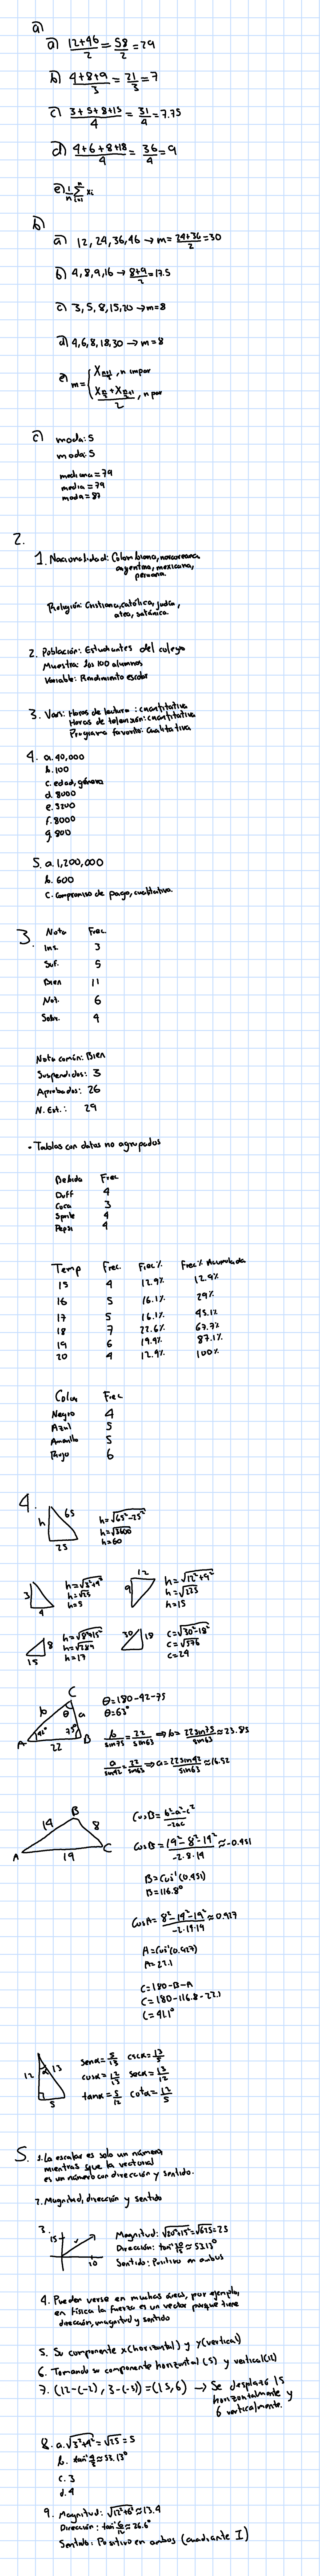 a)
a) 12+46/2 = 58/2 = 29
b) 4+8+9/3 = 21/3 = 7
c) 3+5+8+15/4 = 31/4 = 7.75
d) 4+6+8+18/4 = 36/4 = 9
e) 1/n Σ xi
b)
a) 12, 24, 36, 46 → m = 24+36/2 = 30
b) 4, 8, 9, 16 → 8+9/2 = 17.5
c) 3, 5, 8, 15, 20 → m = 8
d) 4, 6, 8, 18, 30 → m = 8
e) m = { X n+1/2, n impar
X n/2 + X n/2+1 / 2, n par
c) moda: 5
moda: 5
mediana = 79
media = 79
moda = 87
2.
1. Nacionalidad: Colombiana, norcoreana,
argentina, mexicana,
peruana.
Religión: Cristiana, católica, judía,
ateo, satánica.
2. Población: Estudiantes del colegio
Muestra: los 100 alumnos
Variable: Rendimiento escolar
3. Vari: Horas de lectura: cuantitativa
Horas de televisión: cuantitativa
Programa favorito: Cualitativa
4. a. 40,000
b. 100
c. edad, género
d. 8000
e. 3200
f. 8000
g. 800
5. a. 1,200,000
b. 600
c. Compromiso de pago, cualitativa.
3. Nota Frec.
Ins. 3
Suf. 5
Bien 11
Not. 6
Sobr. 4
Nota común: Bien
Suspendidos: 3
Aprobados: 26
N. Est.: 29
• Tablas con datos no agrupados
Bebida Frec
Duff 4
Coca 3
Sprite 4
Pepsi 4
Temp Frec. Frec% Frec% Acumulada
15 4 12.9% 12.9%
16 5 16.1% 29%
17 5 16.1% 45.1%
18 7 22.6% 67.7%
19 6 19.4% 87.1%
20 4 12.9% 100%
Color Frec
Negro 4
Azul 5
Amarillo 5
Rojo 6
4.
h 65 25
h = √65²-25²
h = √3600
h = 60
3 4
h = √3²+4²
h = √25
h = 5
12 9
h = √12²+9²
h = √225
h = 15
8 15
h = √8²+15²
h = √289
h = 17
30 18
c = √30²-18²
c = √576
c = 24
C b θ a A 42° 75° B 22
θ = 180-42-75
θ = 63°
b/sin75 = 22/sin63 ⇒ b = 22sin75/sin63 ≈ 23.85
a/sin42 = 22/sin63 ⇒ a = 22sin42/sin63 ≈ 16.52
B 14 8 A 19 C
CosB = b²-a²-c²/-2ac
CosB = 19²-8²-14²/-2·8·14 ≈ -0.451
B = Cos⁻¹(0.451)
B = 116.8°
CosA = 8²-14²-19²/-2·14·19 ≈ 0.927
A = Cos⁻¹(0.927)
A = 22.1
C = 180-B-A
C = 180-116.8-22.1
C = 41.1°
12 α 13 5
senα = 5/13 cscα = 13/5
cosα = 12/13 secα = 13/12
tanα = 5/12 cotα = 12/5
5. 1. La escalar es solo un número,
mientras que la vectorial
es un número con dirección y sentido.
2. Magnitud, dirección y sentido
3. 15 20
Magnitud: √20²+15² = √625 = 25
Dirección: tan⁻¹ 20/15 ≈ 53.13°
Sentido: Positivo en ambos
4. Pueden verse en muchas áreas, por ejemplo,
en física la fuerza es un vector porque tiene
dirección, magnitud y sentido
5. Su componente x (horizontal) y y (vertical)
6. Tomando su componente horizontal (5) y vertical (12)
7. (12-(-2), 3-(-3)) = (15, 6) → Se desplazó 15
horizontalmente y
6 verticalmente.
8. a. √3²+4² = √25 = 5
b. tan⁻¹ 4/3 ≈ 53.13°
c. 3
d. 4
9. Magnitud: √12²+6² ≈ 13.4
Dirección: tan⁻¹ 6/12 ≈ 26.6°
Sentido: Positivo en ambos (cuadrante I)